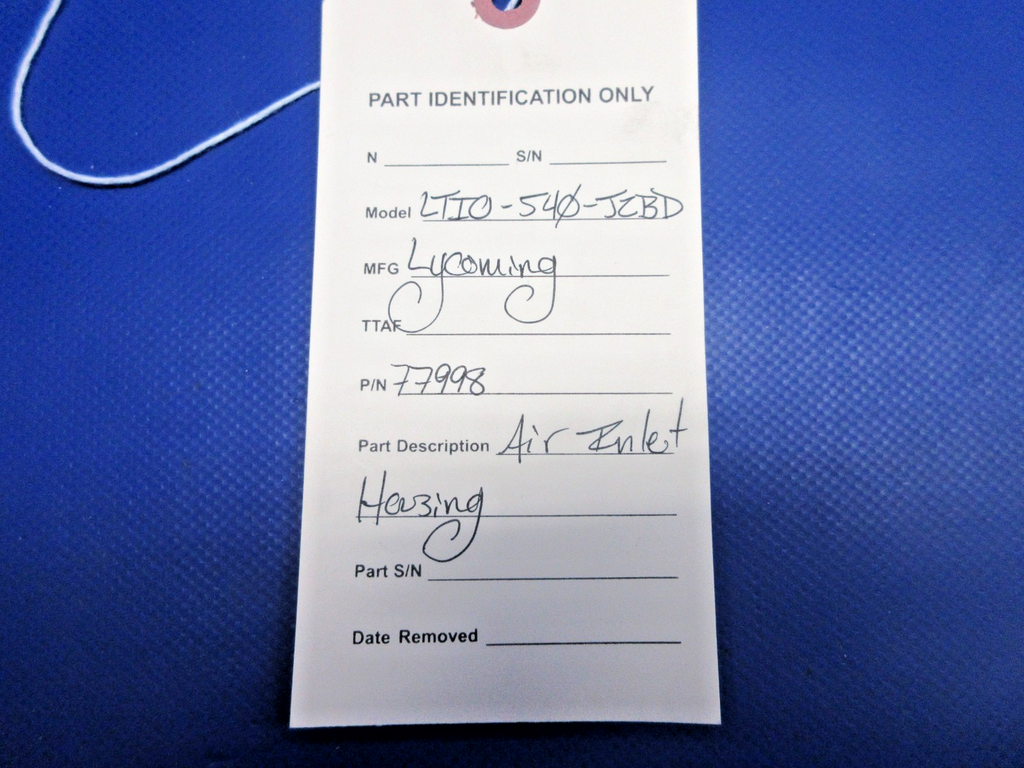 PART IDENTIFICATION ONLY
N ________ S/N ________
Model LTIO-540-J2BD
MFG Lycoming
TTAF ________
P/N 77998
Part Description Air Inlet
Housing
Part S/N ________
Date Removed ________